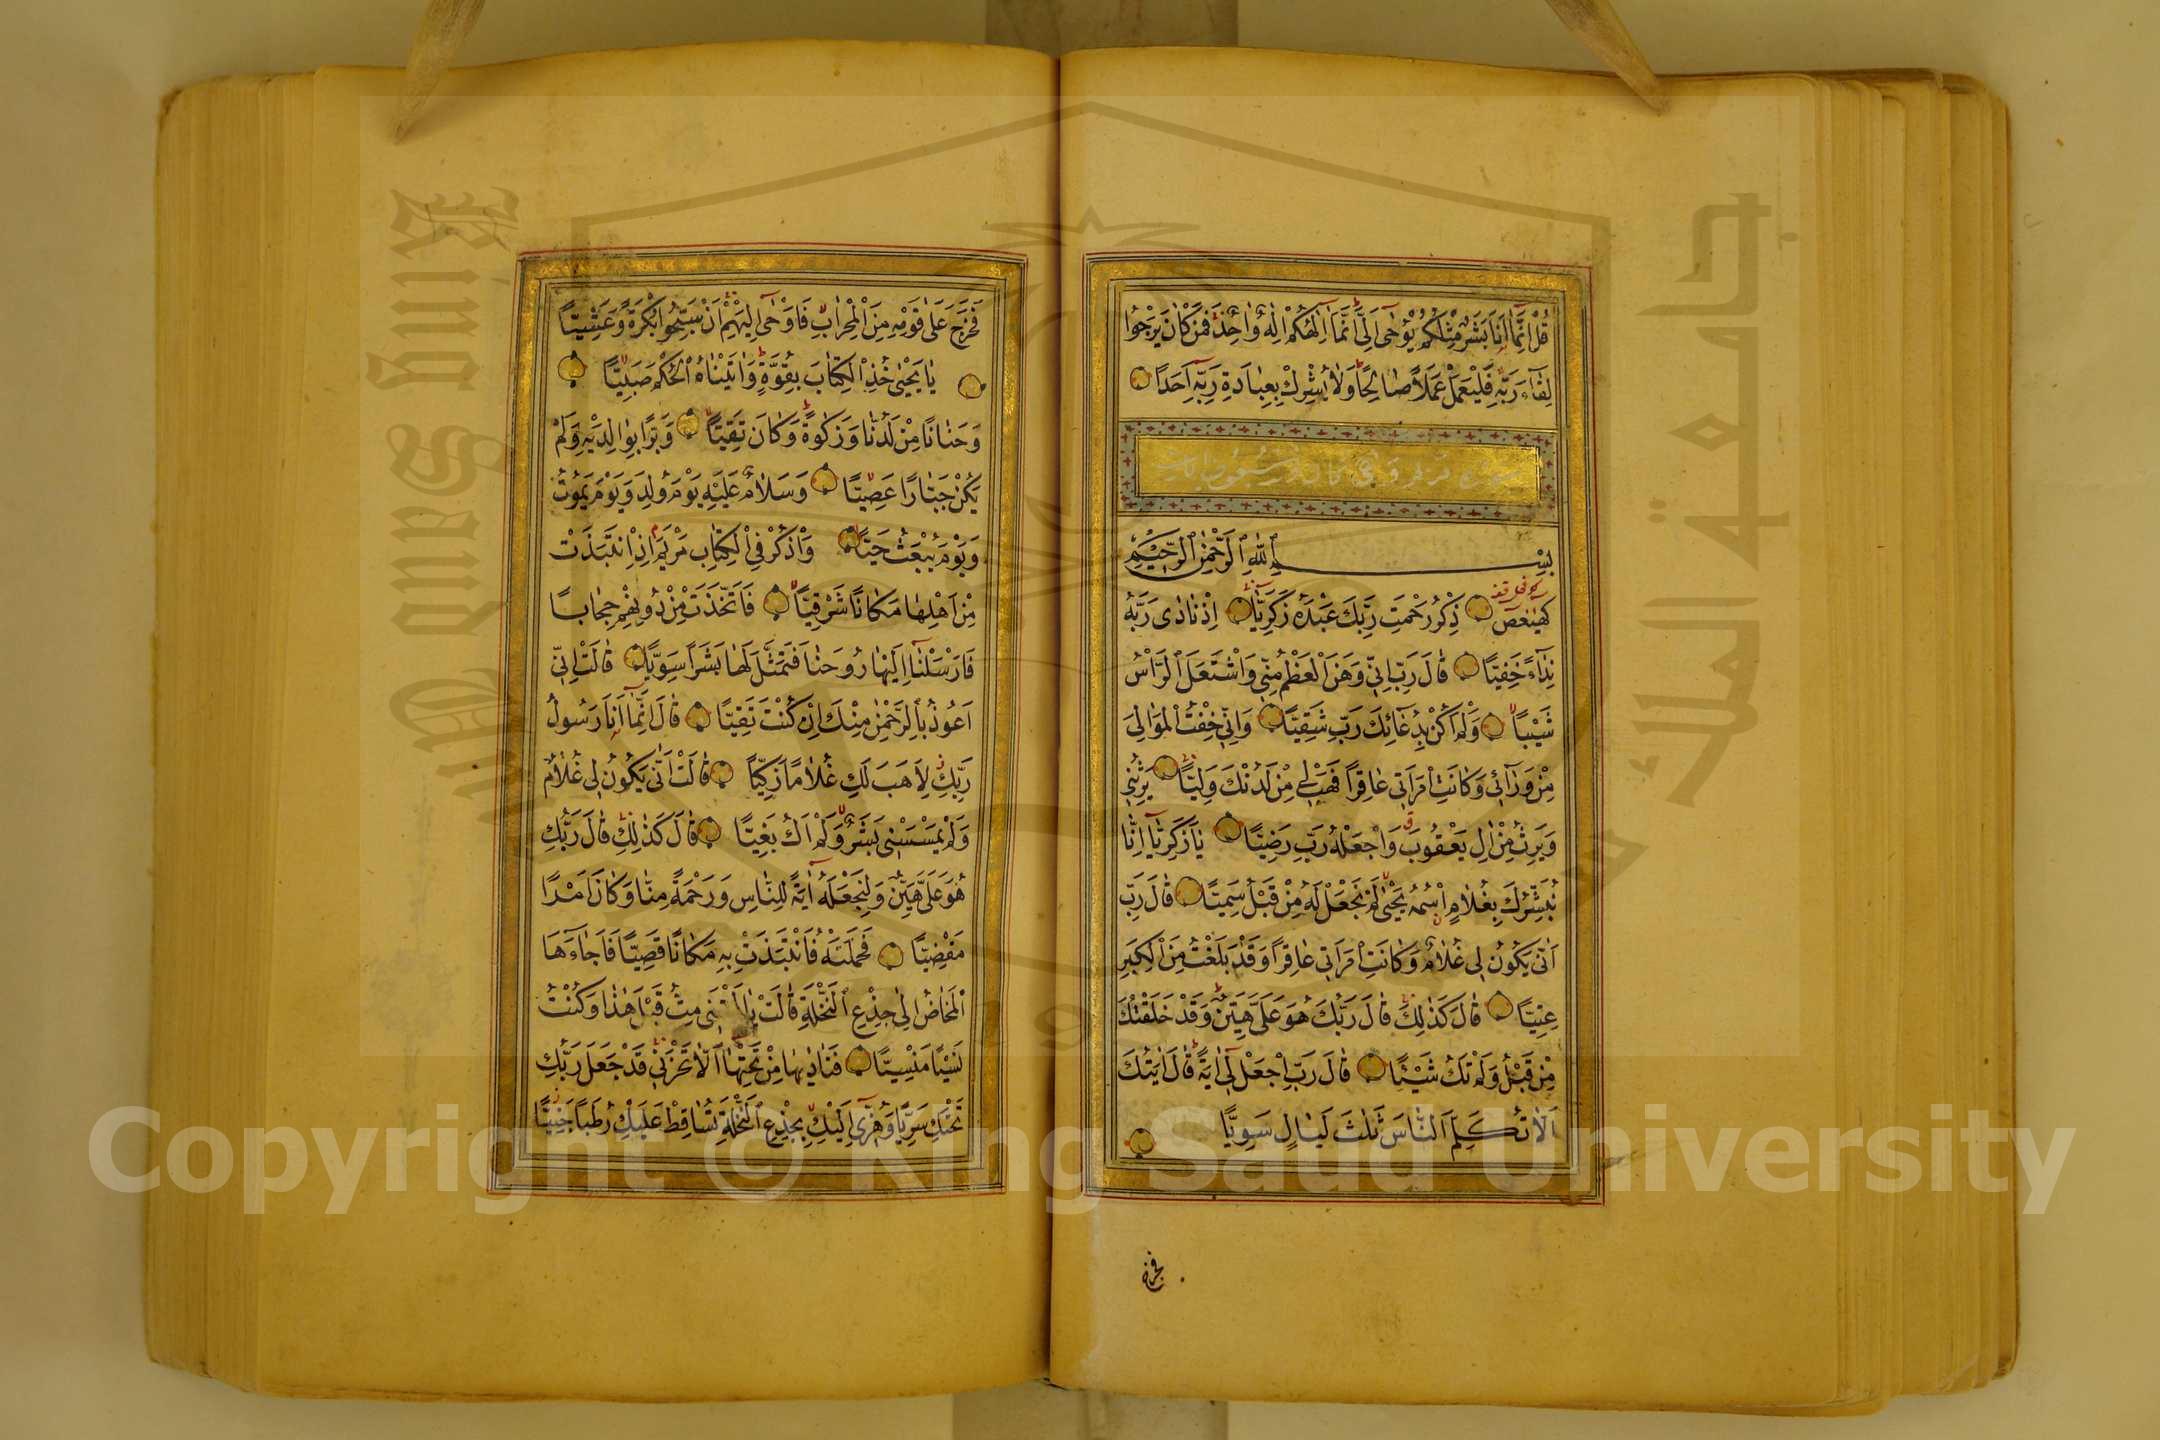 قُلْ اِنَّمَٓا اَنَا بَشَرٌ مِثْلُكُمْ يُوْحٰٓى اِلَىَّ اَنَّمَٓا اِلٰهُكُمْ اِلٰهٌ وَاحِدٌ فَمَنْ كَانَ يَرْجُوا
لِقَٓاءَ رَبِّهِ فَلْيَعْمَلْ عَمَلًا صَالِحًا وَلَا يُشْرِكْ بِعِبَادَةِ رَبِّهِٓ اَحَدًا
سورة مريم وهي ثمان وتسعون ايات
بِسْمِ اللّٰهِ الرَّحْمٰنِ الرَّحِيْمِ
كوفى
كٓهٰيٰعٓصٓ ذِكْرُ رَحْمَتِ رَبِّكَ عَبْدَهُ زَكَرِيَّا اِذْ نَادٰى رَبَّهُ
نِدَٓاءً خَفِيًّا قَالَ رَبِّ اِنِّى وَهَنَ الْعَظْمُ مِنِّى وَاشْتَعَلَ الرَّاْسُ
شَيْبًا وَلَمْ اَكُنْ بِدُعَٓائِكَ رَبِّ شَقِيًّا وَاِنِّى خِفْتُ الْمَوَالِىَ
مِنْ وَرَٓائِى وَكَانَتِ امْرَاَتِى عَاقِرًا فَهَبْ لِى مِنْ لَدُنْكَ وَلِيًّا يَرِثُنِى
وَيَرِثُ مِنْ اٰلِ يَعْقُوبَ وَاجْعَلْهُ رَبِّ رَضِيًّا يَا زَكَرِيَّٓا اِنَّا
نُبَشِّرُكَ بِغُلَامٍ اسْمُهُ يَحْيٰى لَمْ نَجْعَلْ لَهُ مِنْ قَبْلُ سَمِيًّا قَالَ رَبِّ
اَنّٰى يَكُونُ لِى غُلَامٌ وَكَانَتِ امْرَاَتِى عَاقِرًا وَقَدْ بَلَغْتُ مِنَ الْكِبَرِ
عِتِيًّا قَالَ كَذٰلِكَ قَالَ رَبُّكَ هُوَ عَلَىَّ هَيِّنٌ وَقَدْ خَلَقْتُكَ
مِنْ قَبْلُ وَلَمْ تَكُ شَيْئًا قَالَ رَبِّ اجْعَلْ لِٓى اٰيَةً قَالَ اٰيَتُكَ
اَلَّا تُكَلِّمَ النَّاسَ ثَلٰثَ لَيَالٍ سَوِيًّا
فخرج
فَخَرَجَ عَلٰى قَوْمِهِ مِنَ الْمِحْرَابِ فَاَوْحٰٓى اِلَيْهِمْ اَنْ سَبِّحُوا بُكْرَةً وَعَشِيًّا
يَا يَحْيٰى خُذِ الْكِتَابَ بِقُوَّةٍ وَاٰتَيْنَاهُ الْحُكْمَ صَبِيًّا
وَحَنَانًا مِنْ لَدُنَّا وَزَكٰوةً وَكَانَ تَقِيًّا وَبَرًّا بِوَالِدَيْهِ وَلَمْ
يَكُنْ جَبَّارًا عَصِيًّا وَسَلَامٌ عَلَيْهِ يَوْمَ وُلِدَ وَيَوْمَ يَمُوتُ
وَيَوْمَ يُبْعَثُ حَيًّا وَاذْكُرْ فِى الْكِتَابِ مَرْيَمَ اِذِ انْتَبَذَتْ
مِنْ اَهْلِهَا مَكَانًا شَرْقِيًّا فَاتَّخَذَتْ مِنْ دُونِهِمْ حِجَابًا
فَاَرْسَلْنَٓا اِلَيْهَا رُوحَنَا فَتَمَثَّلَ لَهَا بَشَرًا سَوِيًّا قَالَتْ اِنِّٓى
اَعُوذُ بِالرَّحْمٰنِ مِنْكَ اِنْ كُنْتَ تَقِيًّا قَالَ اِنَّمَٓا اَنَا رَسُولُ
رَبِّكِ لِاَهَبَ لَكِ غُلَامًا زَكِيًّا قَالَتْ اَنّٰى يَكُونُ لِى غُلَامٌ
وَلَمْ يَمْسَسْنِى بَشَرٌ وَلَمْ اَكُ بَغِيًّا قَالَ كَذٰلِكِ قَالَ رَبُّكِ
هُوَ عَلَىَّ هَيِّنٌ وَلِنَجْعَلَهُٓ اٰيَةً لِلنَّاسِ وَرَحْمَةً مِنَّا وَكَانَ اَمْرًا
مَقْضِيًّا فَحَمَلَتْهُ فَانْتَبَذَتْ بِهِ مَكَانًا قَصِيًّا فَاَجَٓاءَهَا
الْمَخَاضُ اِلٰى جِذْعِ النَّخْلَةِ قَالَتْ يَا لَيْتَنِى مِتُّ قَبْلَ هٰذَا وَكُنْتُ
نَسْيًا مَنْسِيًّا فَنَادٰيهَا مِنْ تَحْتِهَٓا اَلَّا تَحْزَنِى قَدْ جَعَلَ رَبُّكِ
تَحْتَكِ سَرِيًّا وَهُزِّٓى اِلَيْكِ بِجِذْعِ النَّخْلَةِ تُسَاقِطْ عَلَيْكِ رُطَبًا جَنِيًّا
King Saud University
جامعة الملك سعود
Copyright © King Saud University